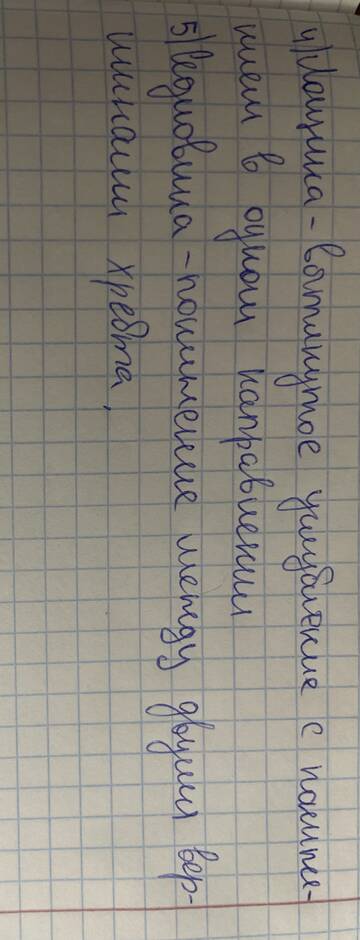 4) Лощина - вытянутое углубление с пониже-
нием в одном направлении
5) Седловина - понижение между двумя вер-
шинами хребта.